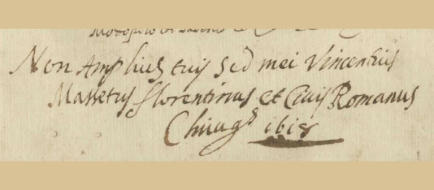 Non Amplius tuis sed mei Vincentius
Massetus florentinus et Civis Romanus
Chirugs 1618